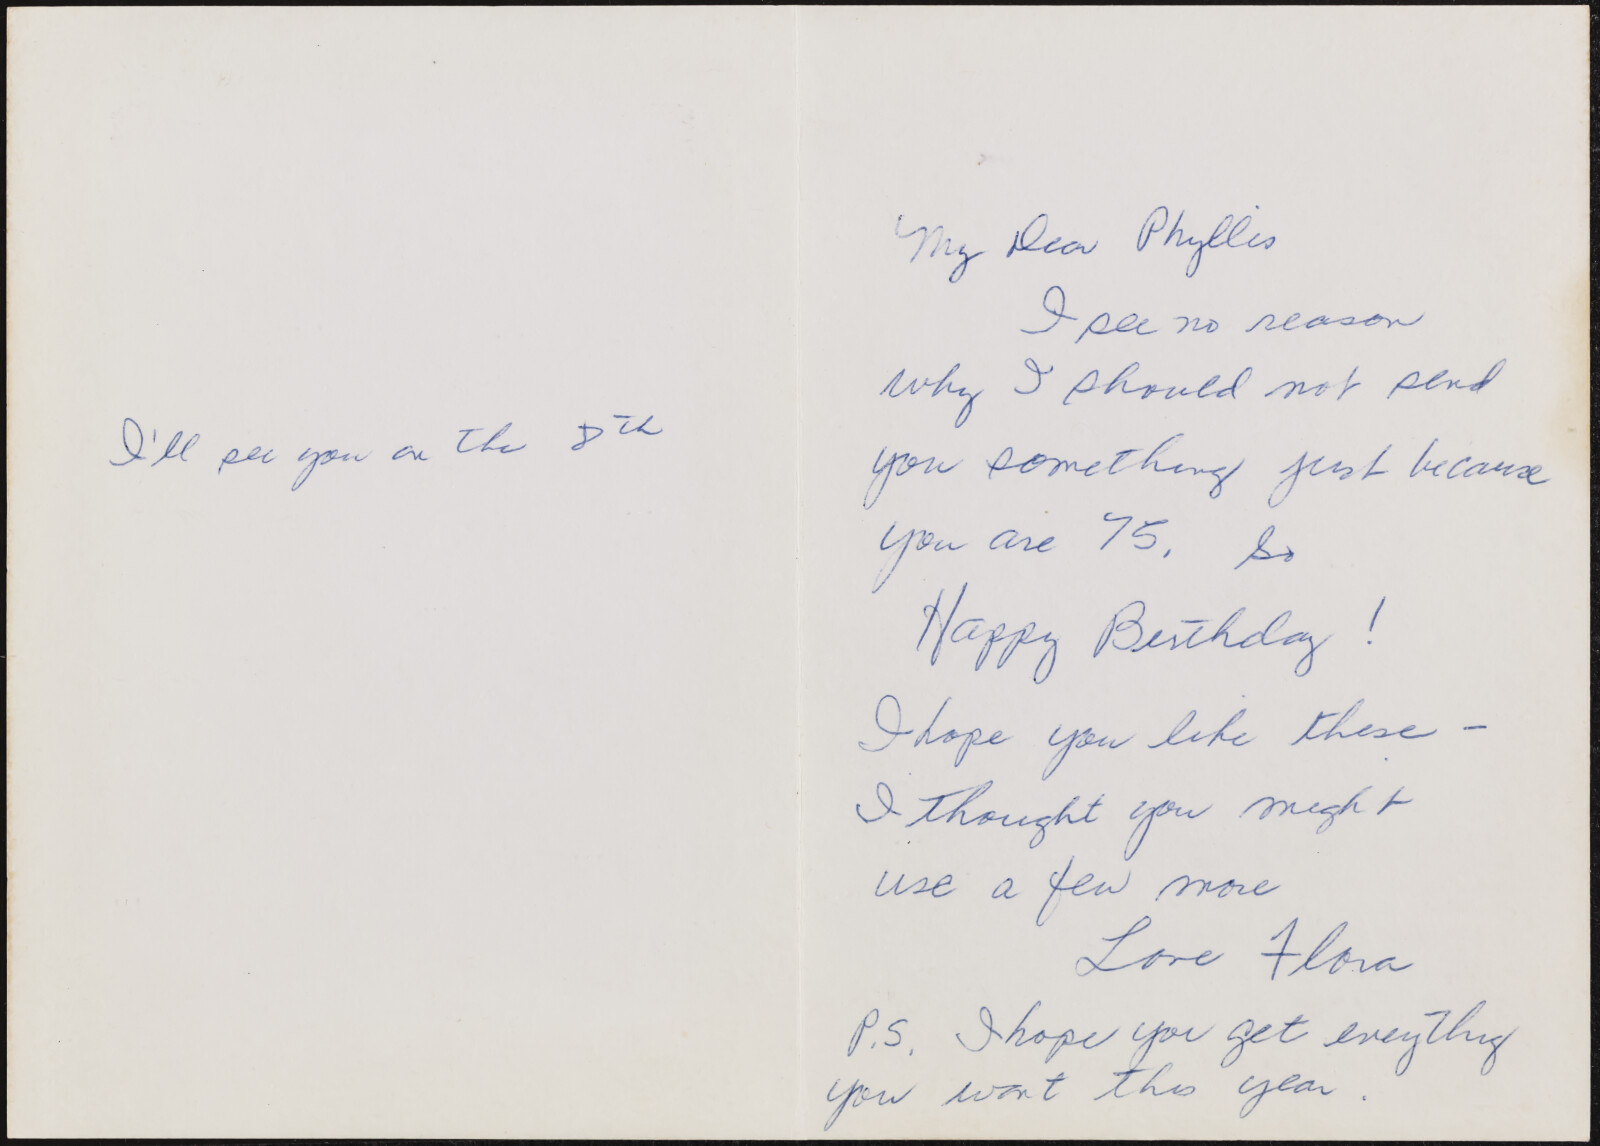 I'll see you on the 8th
My Dear Phyllis
I see no reason
why I should not send
you something just because
you are 75. So
Happy Birthday!
I hope you like these -
I thought you might
use a few more
Love Flora
P.S. I hope you get everything
you want this year.